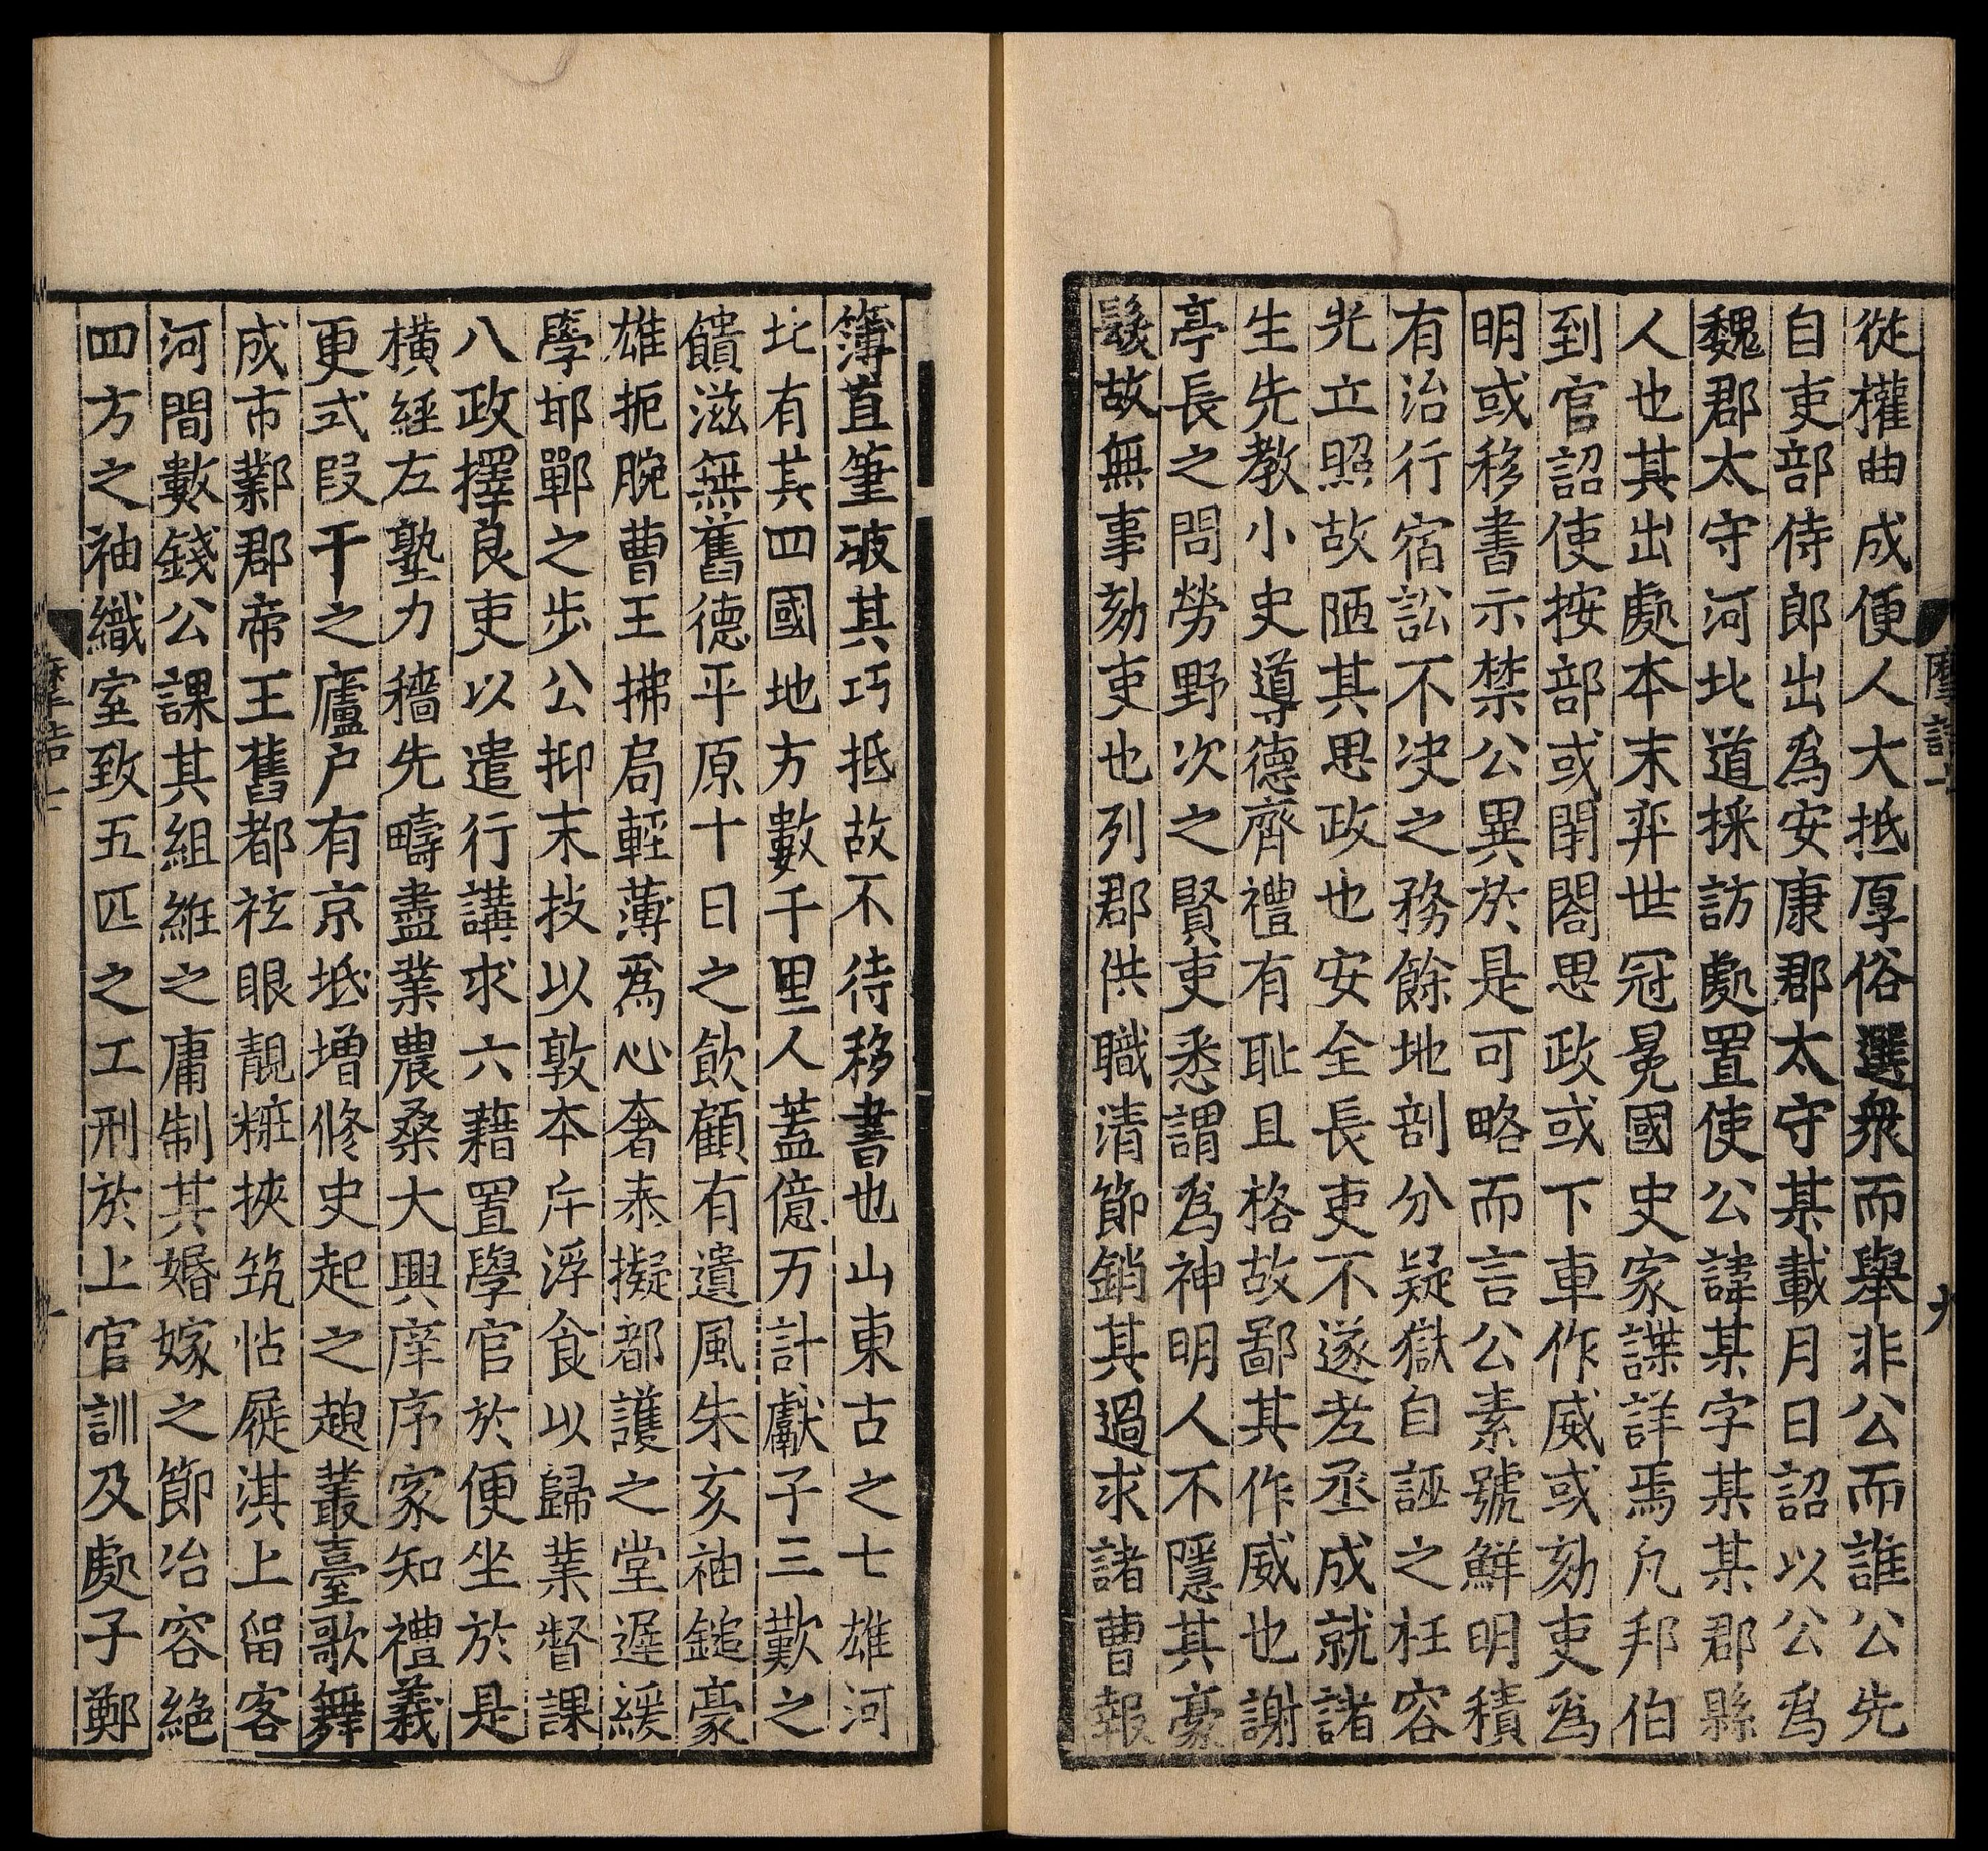 從權曲成便人大抵厚俗選衆而舉非公而誰公先
自吏部侍郎出爲安康郡太守某載月日詔以公爲
魏郡太守河北道採訪處置使公諱某字某某郡縣
人也其出處本末弈世冠冕國史家諜詳焉凡邦伯
到官詔使按部或閉閤思政或下車作威或劾吏爲
明或移書示禁公異於是可略而言公素號鮮明積
有治行宿訟不决之務餘地剖分疑獄自誣之枉容
光立照故陋其思政也安全長吏不遂老丞成就諸
生先教小史導德齊禮有耻且格故鄙其作威也謝
亭長之問勞野次之賢吏悉謂爲神明人不隱其豪
髮故無事劾吏也列郡供職清節銷其過求諸曹報
簿直筆破其巧抵故不待移書也山東古之七雄河
北有其四國地方數千里人蓋億万計獻子三歎之
饋滋無舊德平原十日之飲顧有遺風朱亥袖鎚豪
雄扼腕曹王拂局輕薄爲心奢泰擬都護之堂遲緩
學邯鄲之步公抑末技以敦本斥浮食以歸業督課
八政擇良吏以遣行講求六藉置學官於便坐於是
橫經左塾力穡先疇盡業農桑大興庠序家知禮義
更式段干之廬户有京坻增修史起之趙叢臺歌舞
成市鄴郡帝王舊都袨眼靚糚挾筑怗屣淇上留客
河間數錢公課其組維之庸制其婚嫁之節冶容絶
四方之袖織室致五匹之工刑於上官訓及處子鄭
摩詰七
九